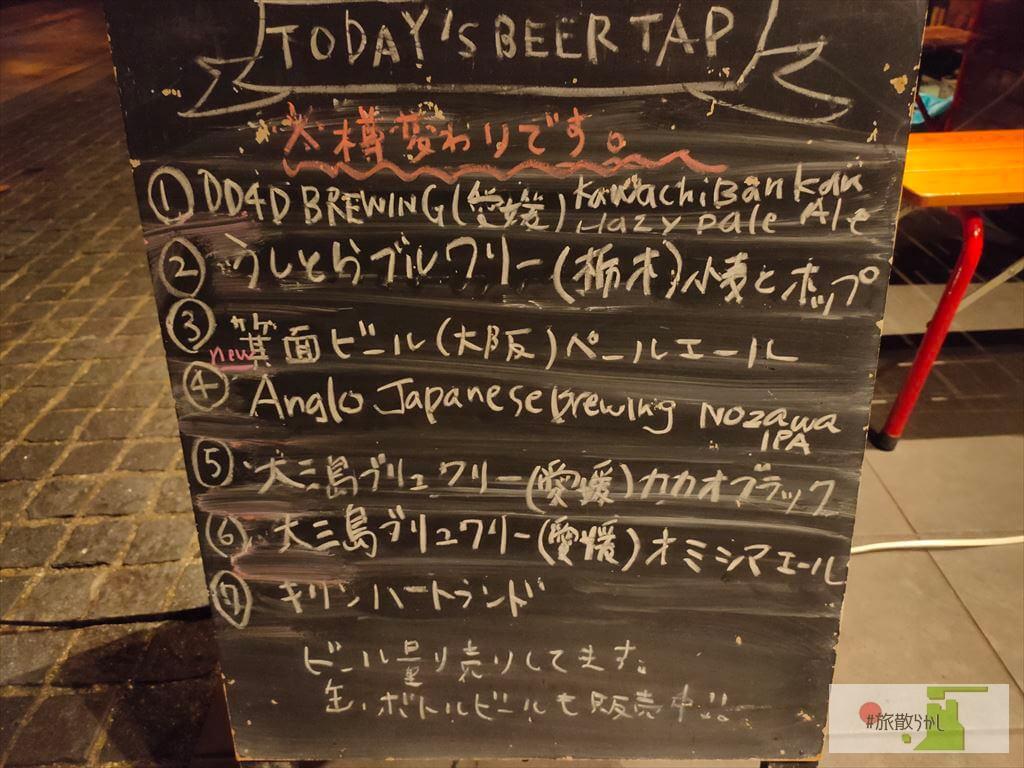 TODAY'S BEER TAP
樽変わりです。
① DD4D BREWING(愛媛) Kawachi Bankan
Hazy pale Ale
② うしとらブルワリー(栃木)小麦とホップ
③ 箕面ビール(大阪)ペールエール
new
④ Anglo Japanese brewing NOZAWA
IPA
⑤ 大三島ブリュワリー(愛媛)カカオブラック
⑥ 大三島ブリュワリー(愛媛)オミシマエール
⑦ キリンハートランド
ビール量り売りしてます。
缶、ボトルビールも販売中!!
#旅散らかし